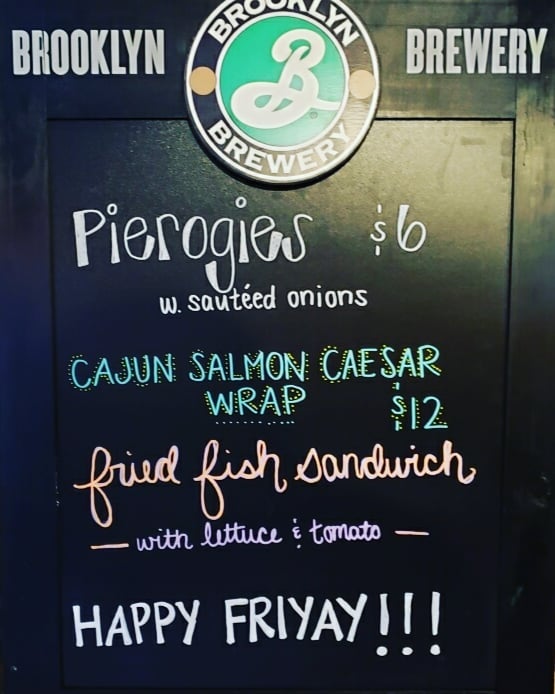 BROOKLYN BREWERY
BROOKLYN
B
BREWERY
Pierogies $6
w. sautéed onions
CAJUN SALMON CAESAR
WRAP $12
fried fish sandwich
— with lettuce & tomato —
HAPPY FRIYAY!!!